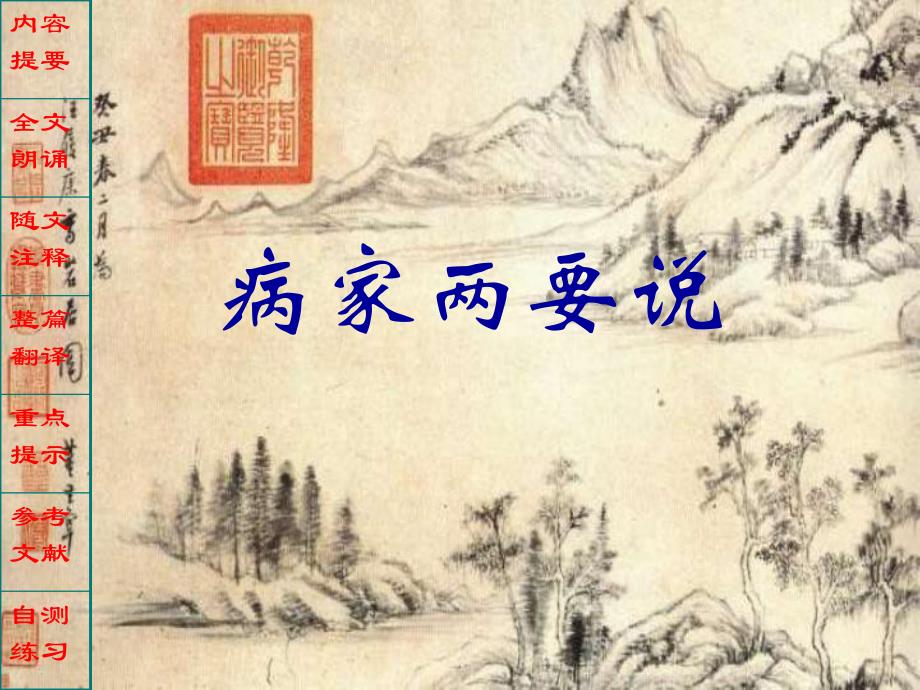 内容
提要
全文
朗诵
随文
注释
整篇
翻译
重点
提示
参考
文献
自测
练习
病家两要说
乾隆
御覽
之寶
癸丑春二月為